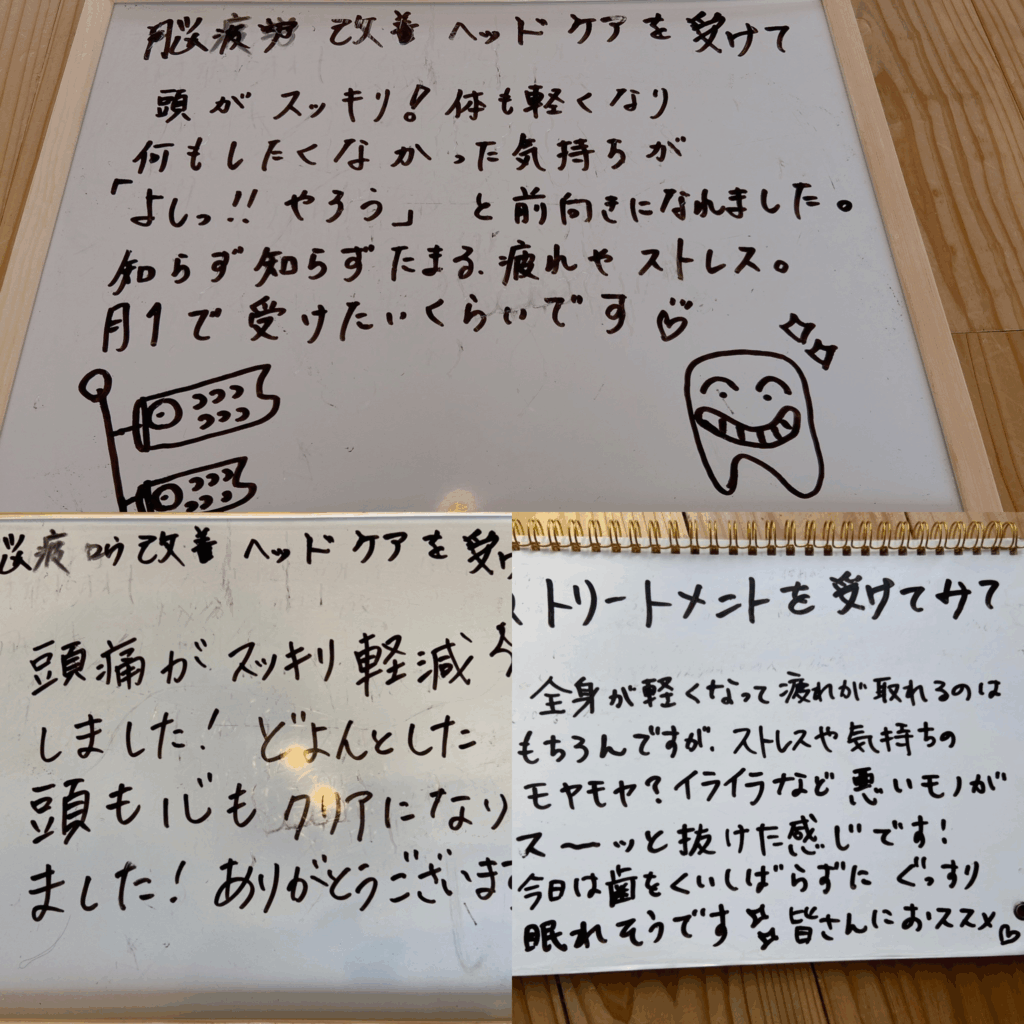 脳疲労改善ヘッドケアを受けて
頭がスッキリ!体も軽くなり
何もしたくなかった気持ちが
「よしっ!!やろう」と前向きになれました。
知らず知らずたまる、疲れやストレス。
月1で受けたいくらいです♡
疲労改善ヘッドケアを受け
頭痛がスッキリ軽減
しました!どよんとした
頭も心もクリアになり
ました!ありがとうございます
トリートメントを受けてみて
全身が軽くなって疲れが取れるのは
もちろんですが、ストレスや気持ちの
モヤモヤ?イライラなど悪いモノが
ス〜ッと抜けた感じです!
今日は歯をくいしばらずにぐっすり
眠れそうです 皆さんにおススメ♡